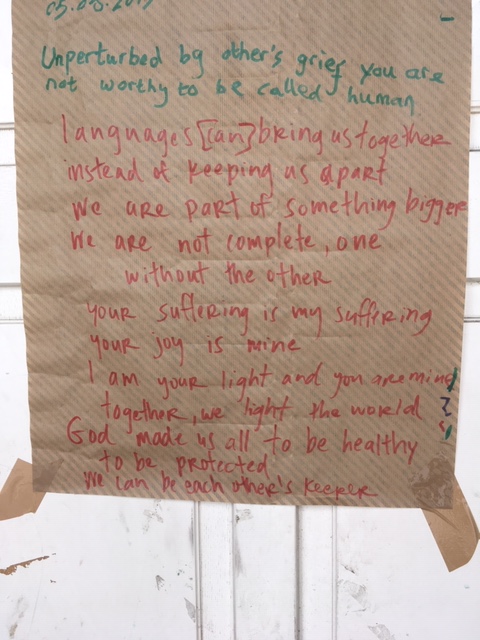 Unperturbed by other's grief you are
not worthy to be called human
languages [can] bring us together
instead of keeping us apart
we are part of something bigger
We are not complete, one
without the other
your suffering is my suffering
your joy is mine
I am your light and you are mine
together, we light the world
God made us all to be healthy
to be protected
We can be each other's keeper